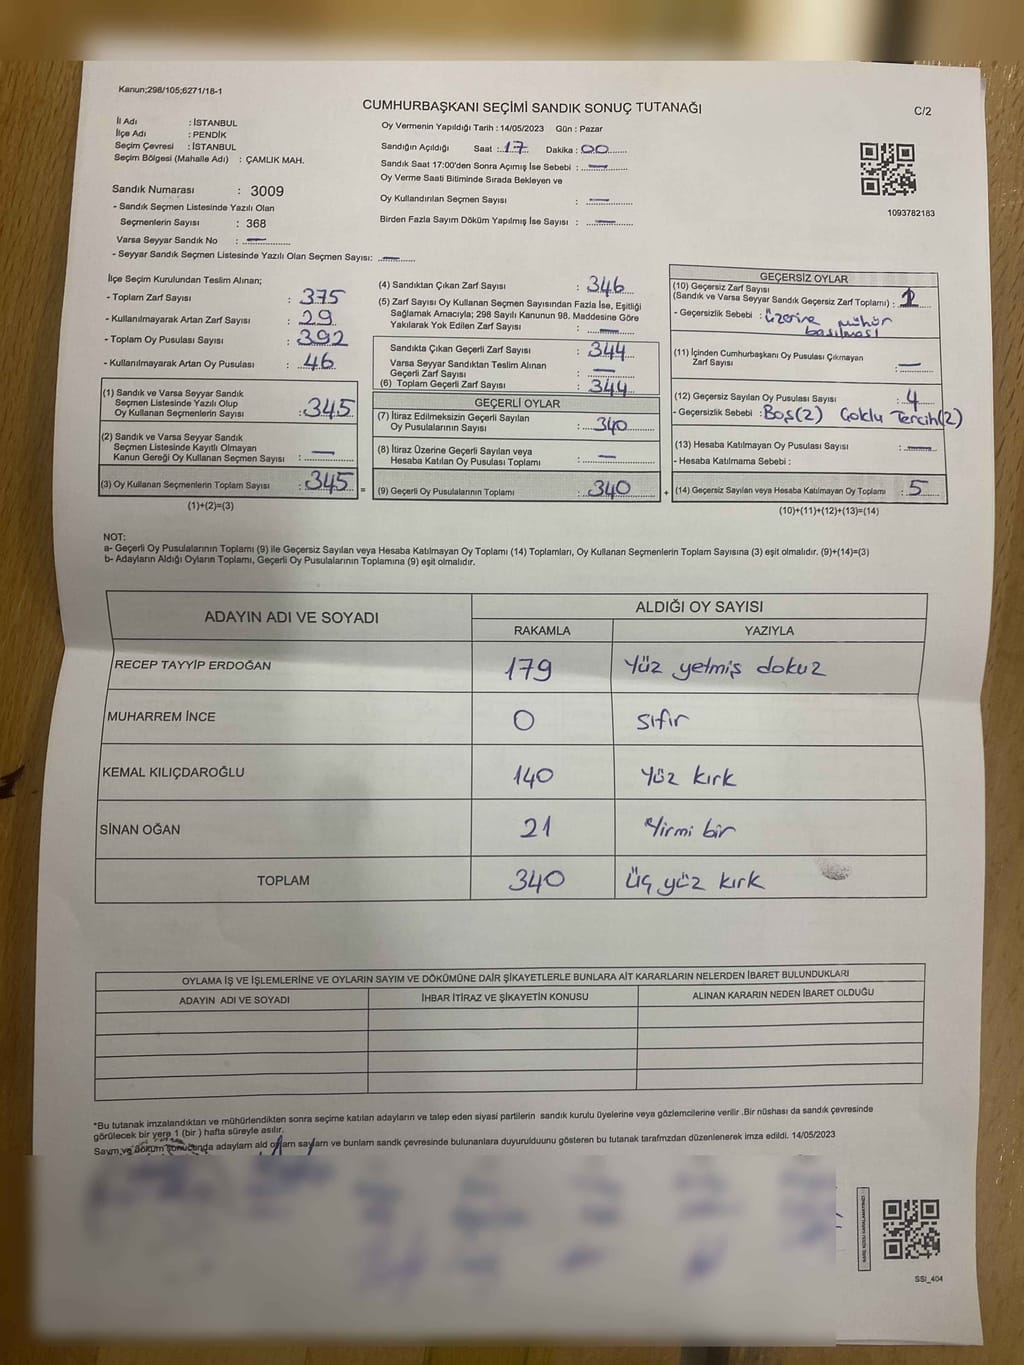 Kanun;298/105;6271/18-1
CUMHURBAŞKANI SEÇİMİ SANDIK SONUÇ TUTANAĞI
C/2
İl Adı : İSTANBUL
İlçe Adı : PENDİK
Seçim Çevresi : İSTANBUL
Seçim Bölgesi (Mahalle Adı) : ÇAMLIK MAH.
Sandık Numarası : 3009
- Sandık Seçmen Listesinde Yazılı Olan
Seçmenlerin Sayısı : 368
Varsa Seyyar Sandık No : —
- Seyyar Sandık Seçmen Listesinde Yazılı Olan Seçmen Sayısı: —
Oy Vermenin Yapıldığı Tarih : 14/05/2023 Gün : Pazar
Sandığın Açıldığı Saat : 17 Dakika : 00
Sandık Saat 17:00'den Sonra Açımış İse Sebebi : —
Oy Verme Saati Bitiminde Sırada Bekleyen ve
Oy Kullandırılan Seçmen Sayısı : —
Birden Fazla Sayım Döküm Yapılmış İse Sayısı : —
1093782183
İlçe Seçim Kurulundan Teslim Alınan;
- Toplam Zarf Sayısı : 375
- Kullanılmayarak Artan Zarf Sayısı : 29
- Toplam Oy Pusulası Sayısı : 392
- Kullanılmayarak Artan Oy Pusulası : 46
(1) Sandık ve Varsa Seyyar Sandık
Seçmen Listesinde Yazılı Olup
Oy Kullanan Seçmenlerin Sayısı : 345
(2) Sandık ve Varsa Seyyar Sandık
Seçmen Listesinde Kayıtlı Olmayan
Kanun Gereği Oy Kullanan Seçmen Sayısı : —
(3) Oy Kullanan Seçmenlerin Toplam Sayısı : 345
(1)+(2)=(3)
=
(4) Sandıktan Çıkan Zarf Sayısı : 346
(5) Zarf Sayısı Oy Kullanan Seçmen Sayısından Fazla İse, Eşitliği
Sağlamak Amacıyla; 298 Sayılı Kanunun 98. Maddesine Göre
Yakılarak Yok Edilen Zarf Sayısı : —
Sandıkta Çıkan Geçerli Zarf Sayısı : 344
Varsa Seyyar Sandıktan Teslim Alınan
Geçerli Zarf Sayısı : —
(6) Toplam Geçerli Zarf Sayısı : 344
GEÇERLİ OYLAR
(7) İtiraz Edilmeksizin Geçerli Sayılan
Oy Pusulalarının Sayısı : 340
(8) İtiraz Üzerine Geçerli Sayılan veya
Hesaba Katılan Oy Pusulası Toplamı : —
(9) Geçerli Oy Pusulalarının Toplamı : 340
+
GEÇERSİZ OYLAR
(10) Geçersiz Zarf Sayısı
(Sandık ve Varsa Seyyar Sandık Geçersiz Zarf Toplamı) : 1
- Geçersizlik Sebebi : üzerine mühür
basılması
(11) İçinden Cumhurbaşkanı Oy Pusulası Çıkmayan
Zarf Sayısı : —
(12) Geçersiz Sayılan Oy Pusulası Sayısı : 4
- Geçersizlik Sebebi : Boş(2) Çoklu Tercih(2)
(13) Hesaba Katılmayan Oy Pusulası Sayısı : —
- Hesaba Katılmama Sebebi :
(14) Geçersiz Sayılan veya Hesaba Katılmayan Oy Toplamı : 5
(10)+(11)+(12)+(13)=(14)
NOT:
a- Geçerli Oy Pusulalarının Toplamı (9) ile Geçersiz Sayılan veya Hesaba Katılmayan Oy Toplamı (14) Toplamları, Oy Kullanan Seçmenlerin Toplam Sayısına (3) eşit olmalıdır. (9)+(14)=(3)
b- Adayların Aldığı Oyların Toplamı, Geçerli Oy Pusulalarının Toplamına (9) eşit olmalıdır.
ADAYIN ADI VE SOYADI
ALDIĞI OY SAYISI
RAKAMLA YAZIYLA
RECEP TAYYİP ERDOĞAN 179 Yüz yetmiş dokuz
MUHARREM İNCE 0 sıfır
KEMAL KILIÇDAROĞLU 140 Yüz kırk
SİNAN OĞAN 21 Yirmi bir
TOPLAM 340 Üç yüz kırk
OYLAMA İŞ VE İŞLEMLERİNE VE OYLARIN SAYIM VE DÖKÜMÜNE DAİR ŞİKAYETLERLE BUNLARA AİT KARARLARIN NELERDEN İBARET BULUNDUKLARI
ADAYIN ADI VE SOYADI İHBAR İTİRAZ VE ŞİKAYETİN KONUSU ALINAN KARARIN NEDEN İBARET OLDUĞU
*Bu tutanak imzalandıktan ve mühürlendikten sonra seçime katılan adayların ve talep eden siyasi partilerin sandık kurulu üyelerine veya gözlemcilerine verilir .Bir nüshası da sandık çevresinde
görülecek bir yere 1 (bir ) hafta süreyle asılır.
Saym ve döküm sonucunda adaylarn ald oylarn saylarn ve bunlarn sandk çevresinde bulunanlara duyurulduunu gösteren bu tutanak tarafmzdan düzenlenerek imza edildi. 14/05/2023
SSI_404